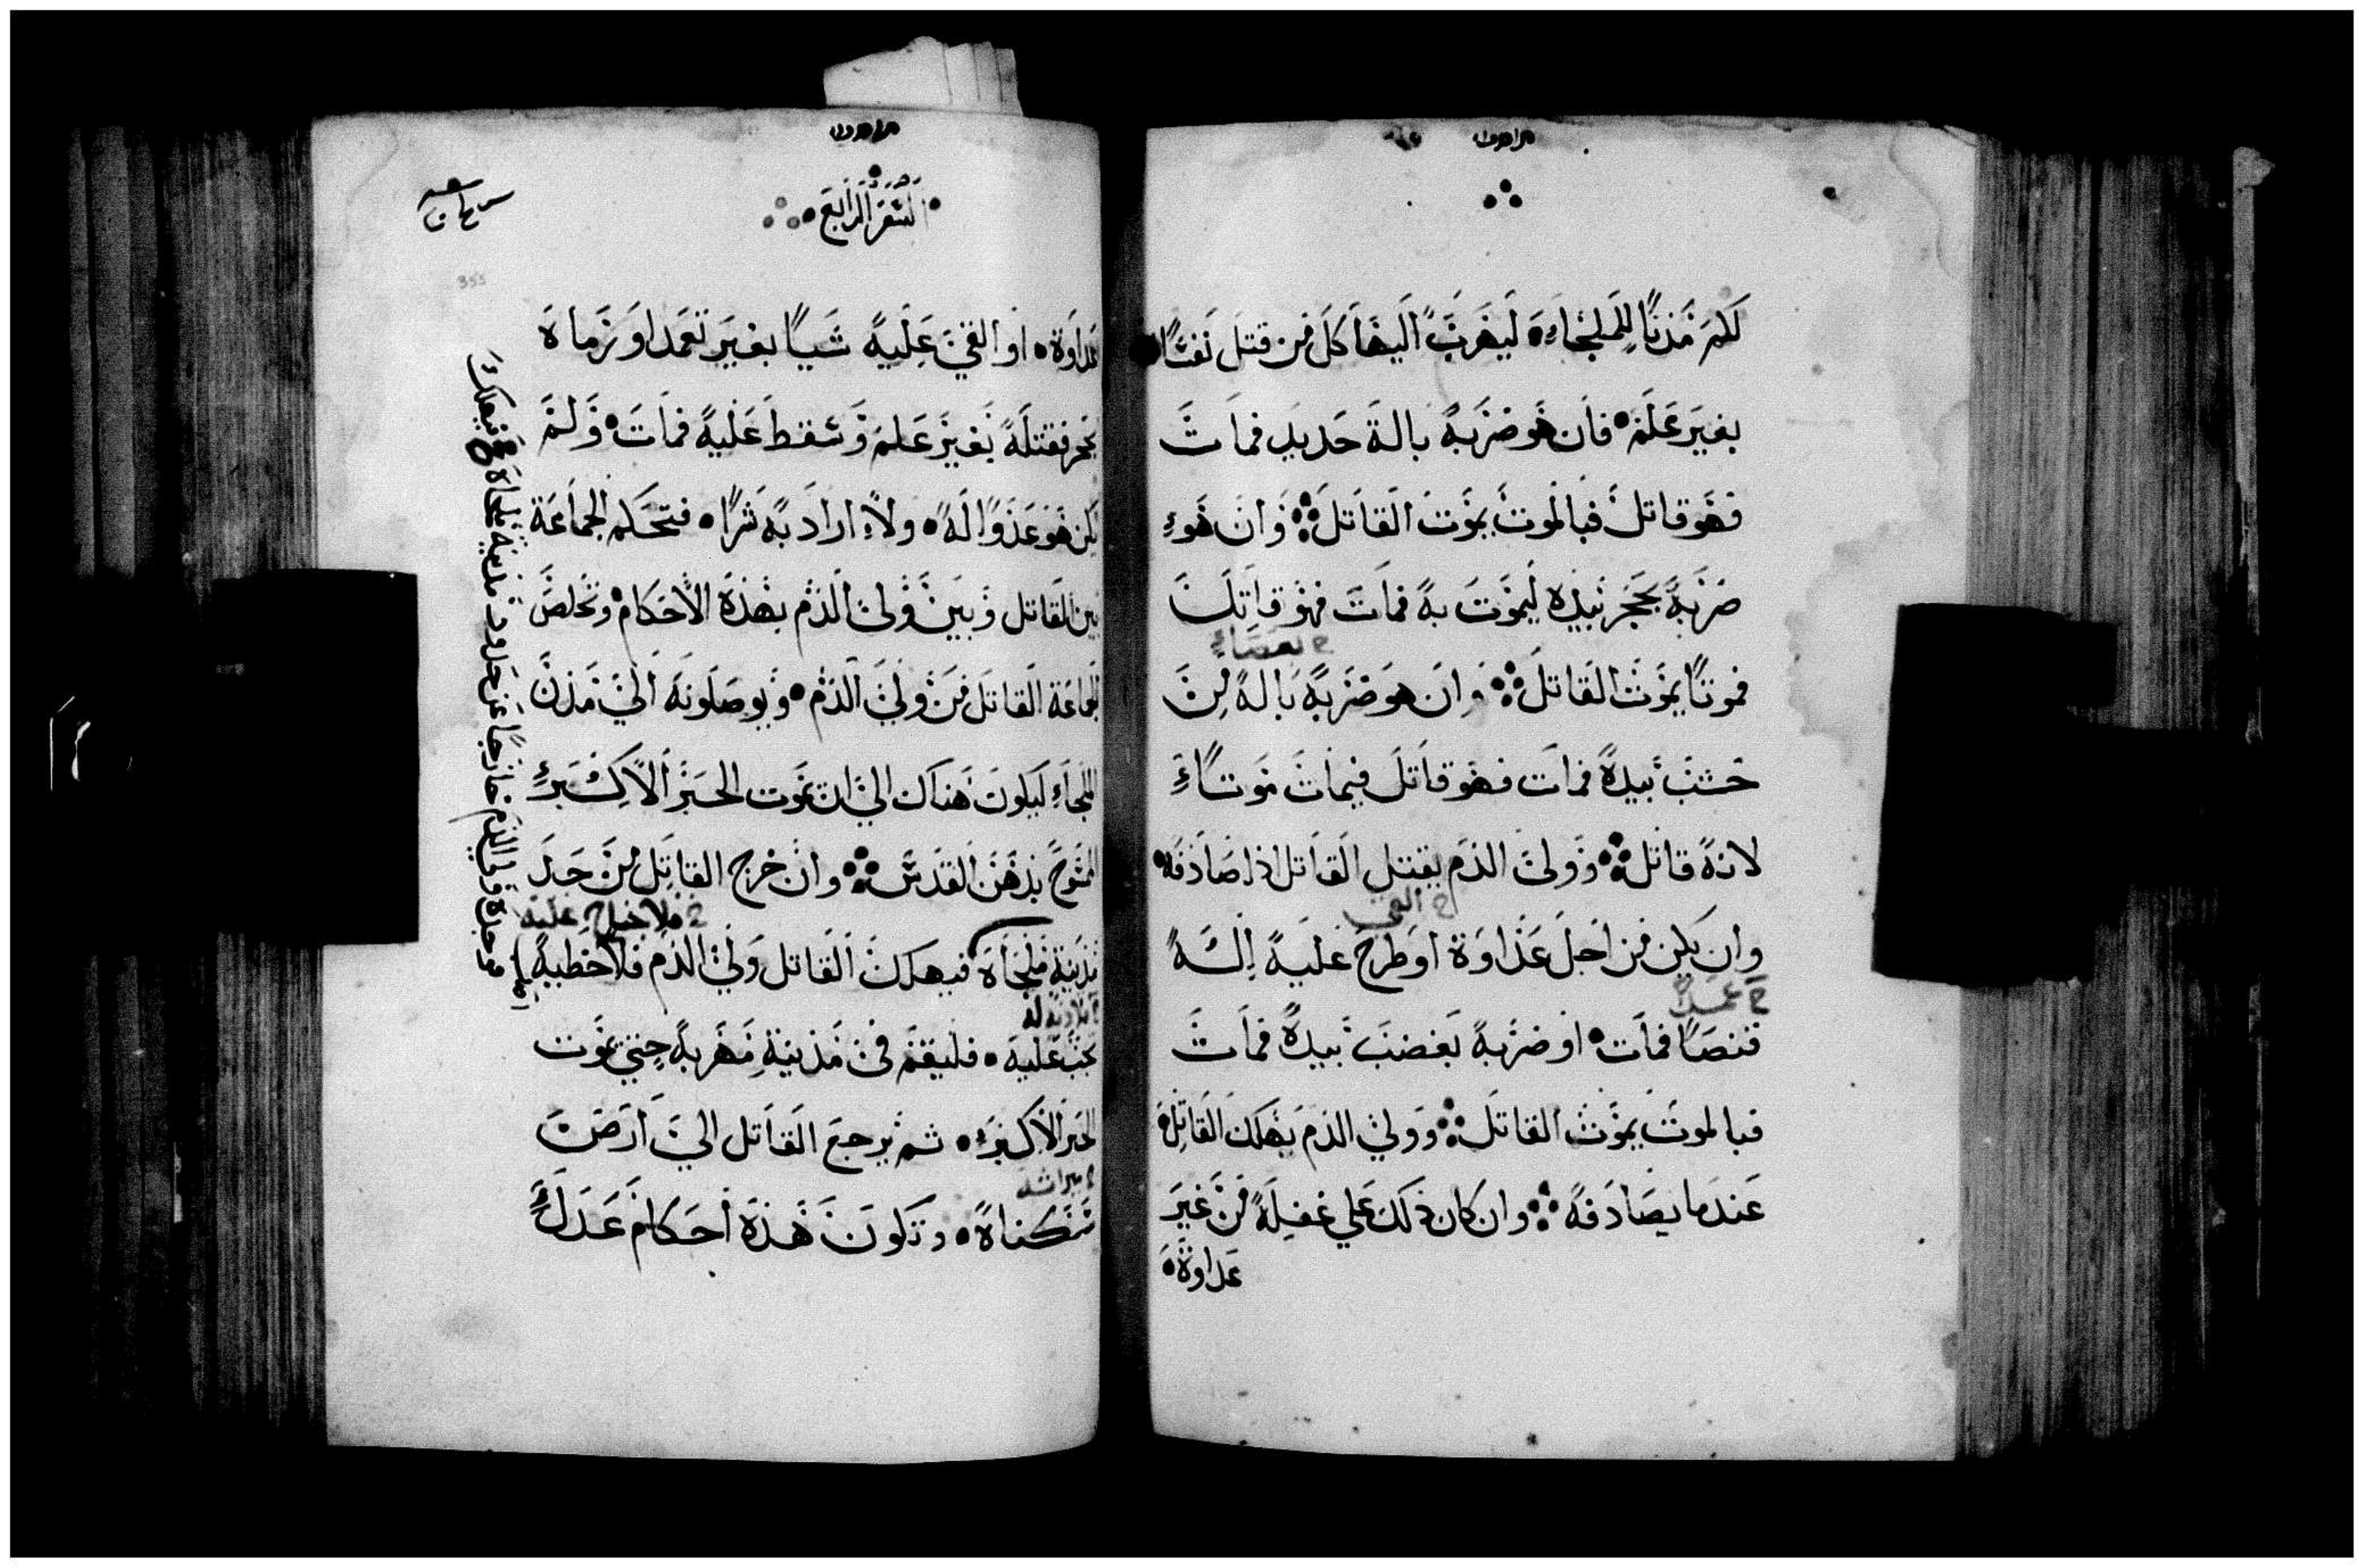 لكم مدنًا للملجاء ليهرب اليها كل من قتل نفسًا
بغير علم فان هو ضربه بالة حديد فمات
فهو قاتل فبالموت يموت القاتل وان هو
ضربه بحجر بيده ليموت به فمات فهو قاتل
بعصاء
فموتًا يموت القاتل وان هو ضربه بالة من
خشب بيده فمات فهو قاتل فيمات موتًا
لانه قاتل وولي الدم يقتل القاتل اذا صادفه
القي
وان يكن من اجل عداوة او طرح عليه الة
عمدًا
فنصًا فمات او ضربه بغضب بيده فمات
فبالموت يموت القاتل وولي الدم يهلك القاتل
عندما يصادفه وان كان ذلك علي غفلة من غير
عداوة
السفر الرابع
355
عداوة او القي عليه شيا بغير تعمد او رماه
بحجر فقتله بغير علم وسقط عليه فمات ولم
يكن هو عدوا له ولا اراد به شرًا فتحكم الجماعة
بين القاتل وبين ولي الدم بهذه الاحكام وتخلص
الجماعة القاتل من ولي الدم ويوصلونه الي مدن
الملجاء ليكون هناك الي ان يموت الحبر الاكبر
الممسوح بدهن القدس وان خرج القاتل من حد
فلا جناح عليه
مدينة ملجاه فيهلك القاتل ولي الدم فلا خطية
تجب عليه فليقم في مدينة مهربه حتي يموت
الحبر الاكبر ثم يرجع القاتل الي ارض
ميراثه
سكناه وتكون هذه احكام عدل
ووجده ولي الدم خارجًا عن حدود مدينة ملجاه فيهلك